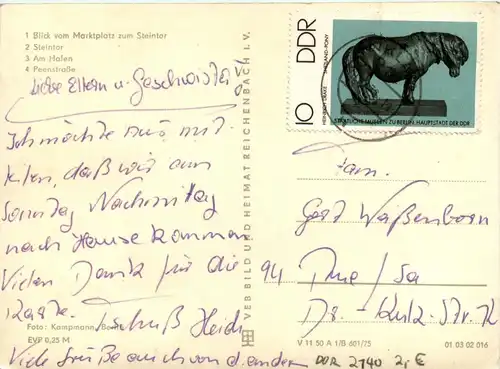 1 Blick vom Marktplatz zum Steintor
2 Steintor
3 Am Hafen
4 Peenstraße
Liebe Eltern u. Geschwister!
Ich möchte nur mit
teilen, daß wir am
Sonntag Nachmittag
nach Hause kommen
Vielen Dank für die
Karte.
Gruß Heidi
Viele Grüße auch von d. andern
Foto: Kampmann, Berlin
EVP 0,25 M
VEB BILD UND HEIMAT REICHENBACH I. V.
DDR
10
HEINRICH DRAKE SHETLAND-PONY
STAATLICHE MUSEEN ZU BERLIN HAUPTSTADT DER DDR
Fam.
Gerd Weißenborn
94 Aue/Sa
Dr.-Kurz-Str. 12
V 11 50 A 1/B 601/75
01 03 02 016
DDR 2740 2,- €